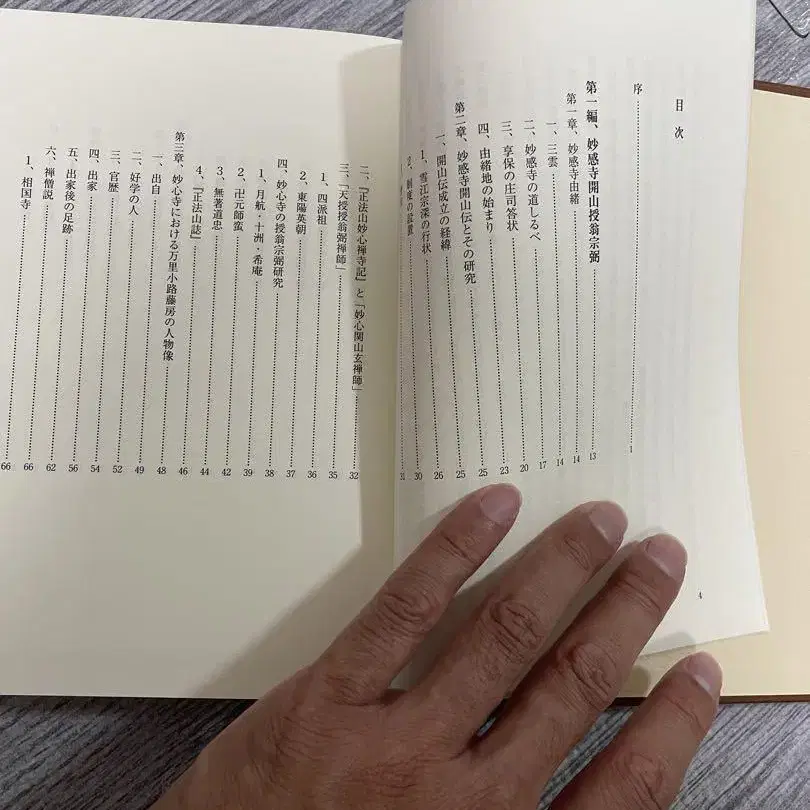 目次
序 1
第一編、妙感寺開山授翁宗弼 13
第一章、妙感寺由緒 14
一、三雲 14
二、妙感寺の道しるべ 17
三、享保の庄司答状 20
四、由緒地の始まり 23
第二章、妙感寺開山伝とその研究 25
一、開山伝成立の経緯 25
1、雪江宗深の行状 26
2、制度の設置 30
31
二、『正法山妙心禅寺記』と「妙心関山玄禅師」 32
三、「天授授翁弼禅師」 35
1、四派祖 36
2、東陽英朝 36
四、妙心寺の授翁宗弼研究 37
1、月航・十洲・希庵 38
2、卍元師蛮 39
3、無著道忠 42
4、『正法山誌』 44
第三章、妙心寺における万里小路藤房の人物像 46
一、出自 48
二、好学の人 49
三、官歴 52
四、出家 54
五、出家後の足跡 56
六、禅僧説 62
1、相国寺 66
66
4